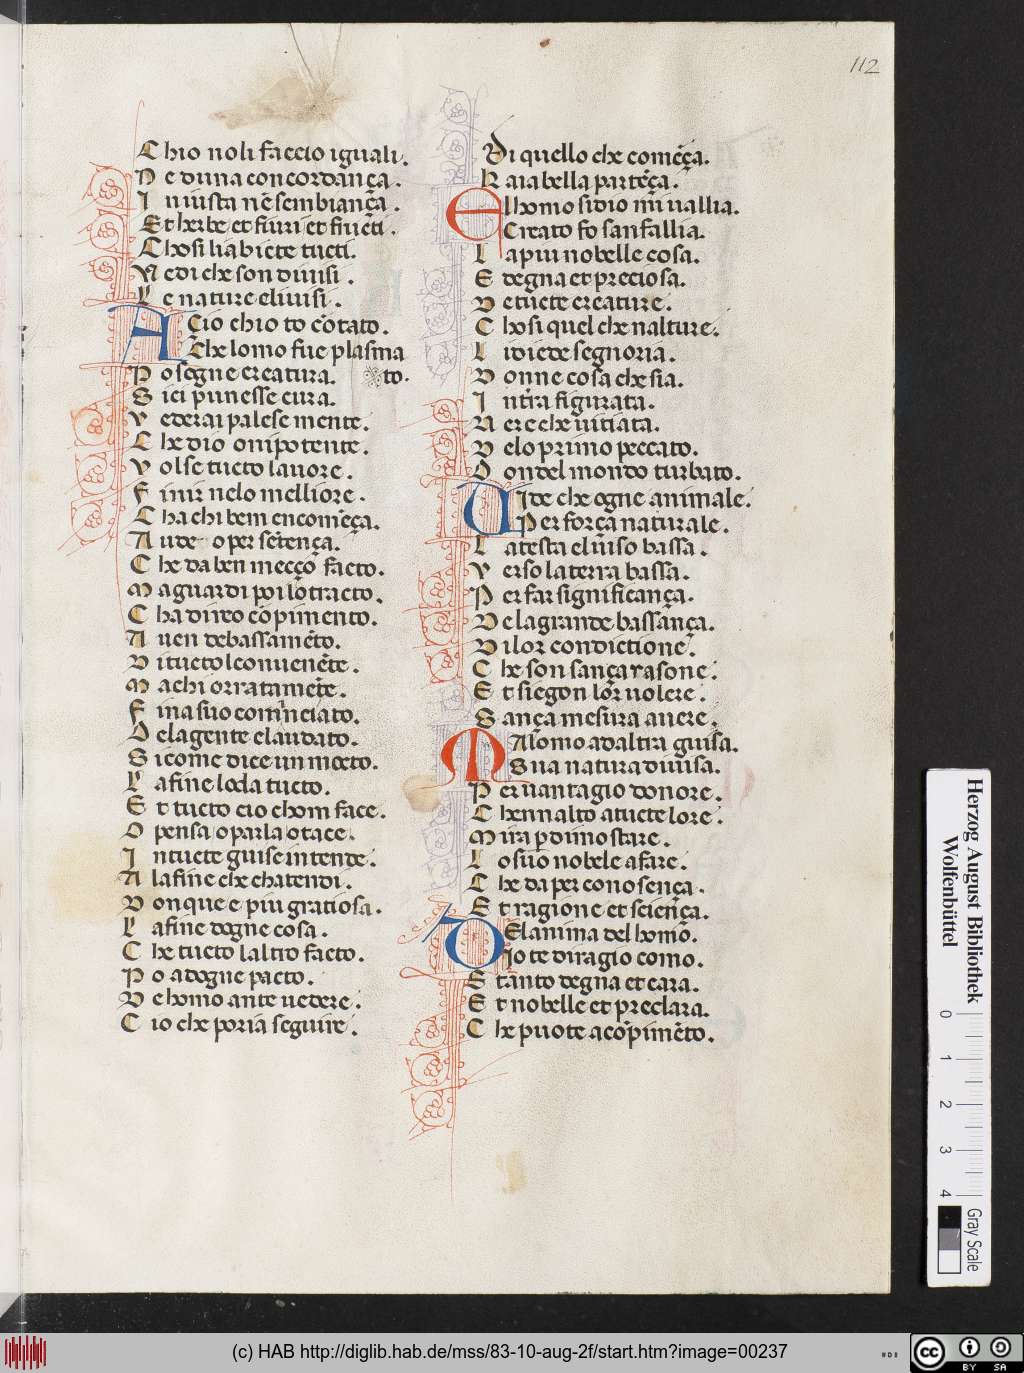 112
C hio noli faccio iguali.
N e duna concordança.
I n iusta nē sembiança.
Et herbe et fiuri et fruēti.
Chosi liabiete tucti.
V edi che son diuisi.
L e nature eliuisi.
A Cio chio to cōtato.
Che lomo fue plasma
P o segne creatura. to.
S ici punesse cura.
V ederai palese mente.
C he dio onipotente.
V olse tucto lauore.
F inir nelo melliore.
C ha chi bem encomēça.
A ude oper sētença.
C he da ben meçço facto.
M a guardi poi lo tracto.
C ha dirdo cōpimento.
A uen debassamēto.
D i tucto lconuenēte.
M a chi orratamēte.
F ina suo comīnciato.
D elagente e laudato.
S icome dice un mocto.
L a fine loda tucto.
E t tucto cio chom face.
O pensa o parla o tace.
I n tucte guise intende.
A la fine che chatendi.
D onque e piu gratiosa.
L a fine dogne cosa.
C he tucto laltro facto.
P o adogne pacto.
D e homo ante uedere.
C io che poria seguire.
Di quello che comēça.
R aia bella partēça.
E lhomo sidio mi uallia.
Creato fo san fallia.
L a piu nobelle cosa.
E degna et preciosa.
D e tucte creature.
C hosi quel che nalture.
L i diede segnoria.
D onne cosa che sia.
I n tīra figurata.
N er e che uitiata.
D elo primo peccato.
D ondel mondo turbato.
U Ide che ogne animale.
Per força naturale.
L a testa el uiso bassa.
V erso la terra bassa.
P er far significança.
D e la grande bassança.
D i lor condictione.
C he son sança rasone.
E t siegon lōr uolere.
S ança mesura auere.
M A lomo ad altra guisa.
Sua natura diuisa.
P er uantagio donore.
C henn alto a tucte lore.
M ira p dimostrare.
L o suo nobele afare.
C he da per conosença.
E t ragione et sciēnça.
D Elanima del homo.
Io te diragio como.
E tanto degna et cara.
E t nobelle et preclara.
C he puote acōpimēto.
Herzog August Bibliothek
Wolfenbüttel
0 1 2 3 4
Gray Scale
(c) HAB http://diglib.hab.de/mss/83-10-aug-2f/start.htm?image=00237
cc BY SA